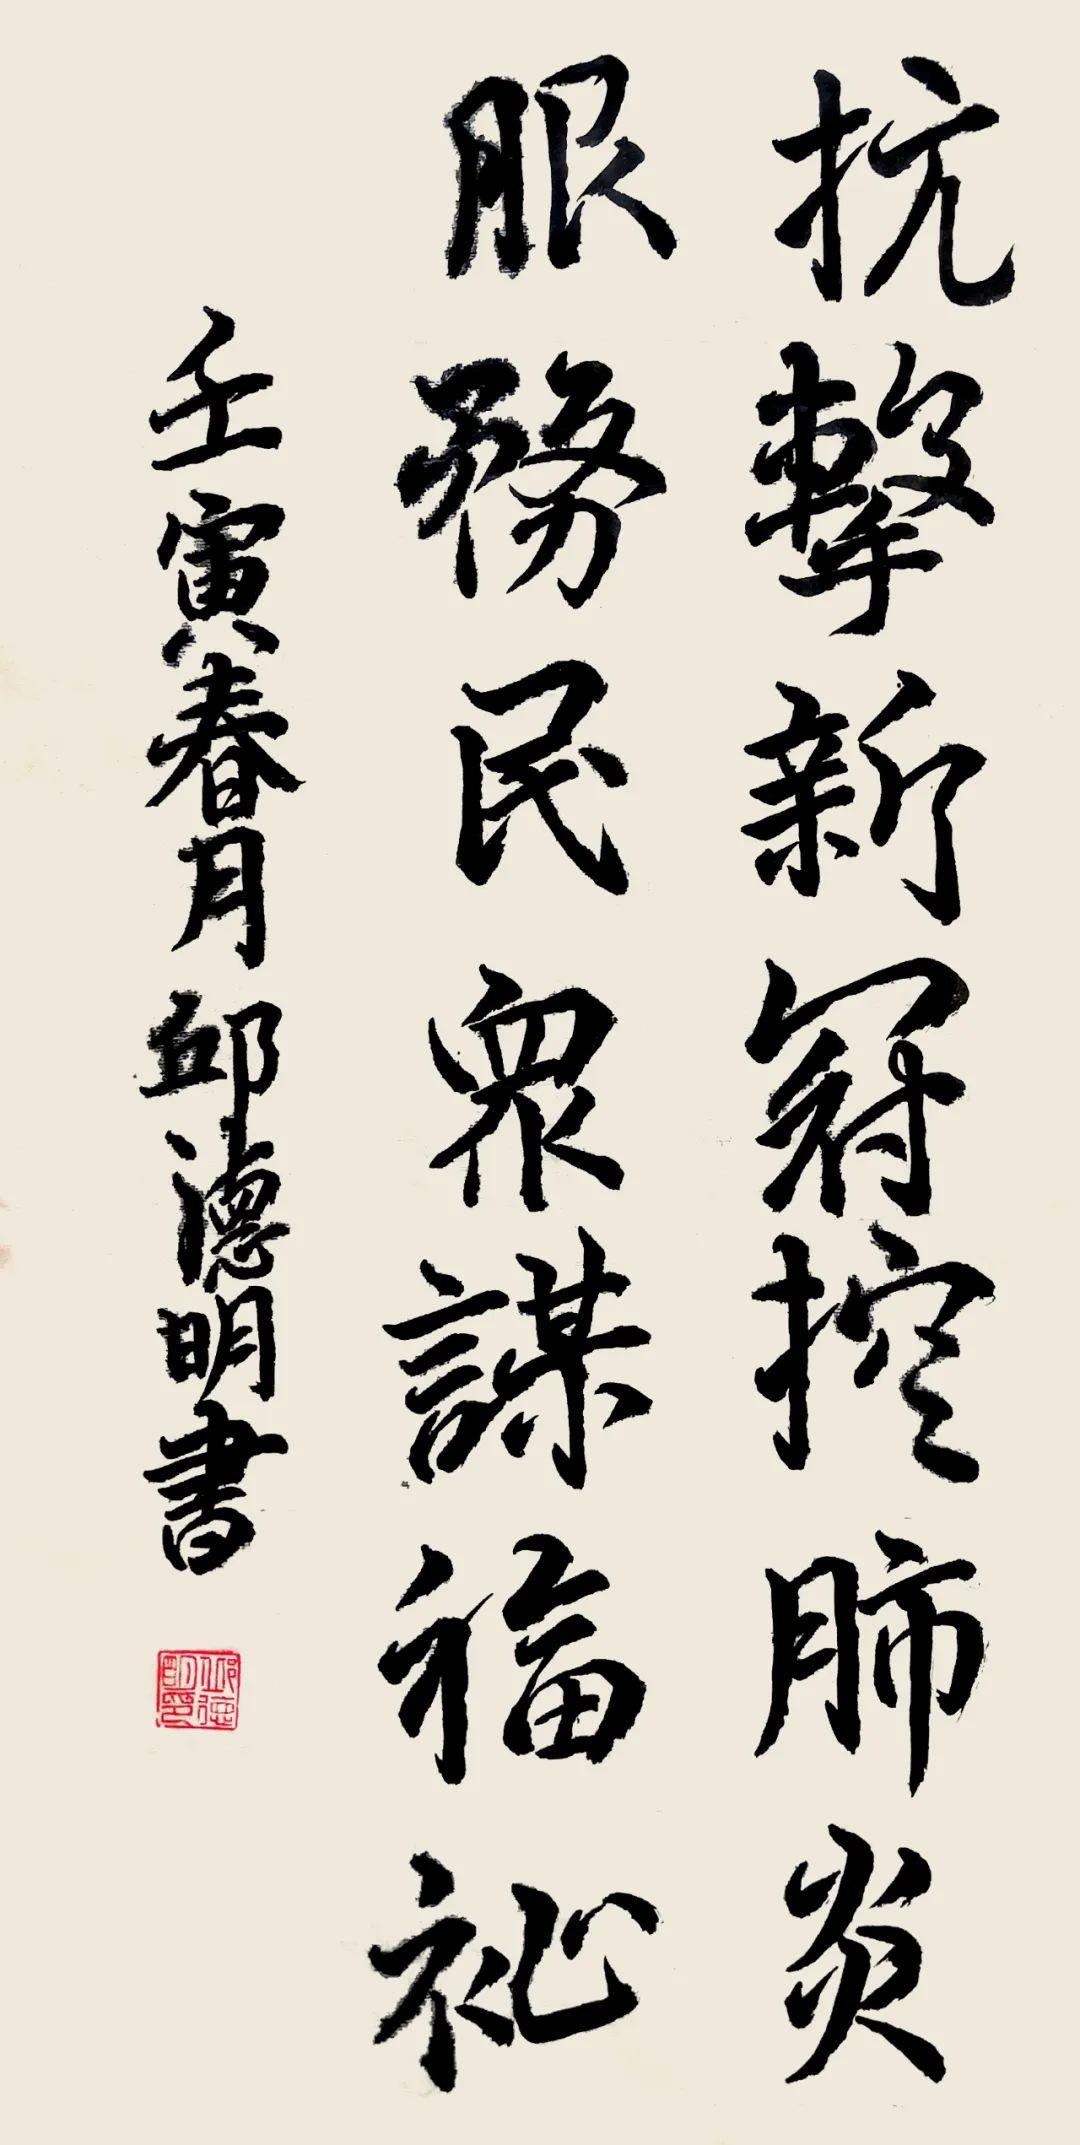 抗擊新冠控肺炎
服務民眾謀福祉
壬寅春月邱德明書
邱德明印